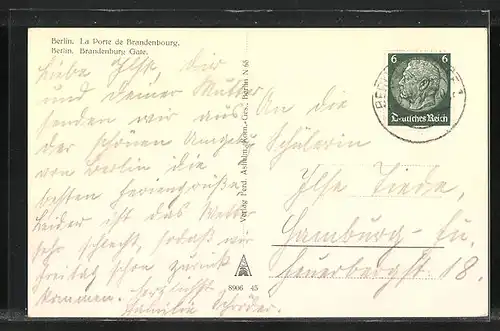 Berlin. La Porte de Brandenbourg.
Berlin. Brandenburg Gate.
Liebe Ilse, Dir
und Deiner Mutter
senden wir aus
der schönen Umgeb.
von Berlin die
besten Feriengrüße.
Leider ist das Wetter
sehr schlecht, sodaß wir
Freitag schon zurück
kommen. Herzlichst
Familie Schröder.
Verlag Ferd. Ashelm Kom.-Ges., Berlin N 65
8906 45
6 6
Deutsches Reich
BERLIN
An die
Schülerin
Ilse Tiede,
Hamburg-Fu.
Heuerbergst 18.